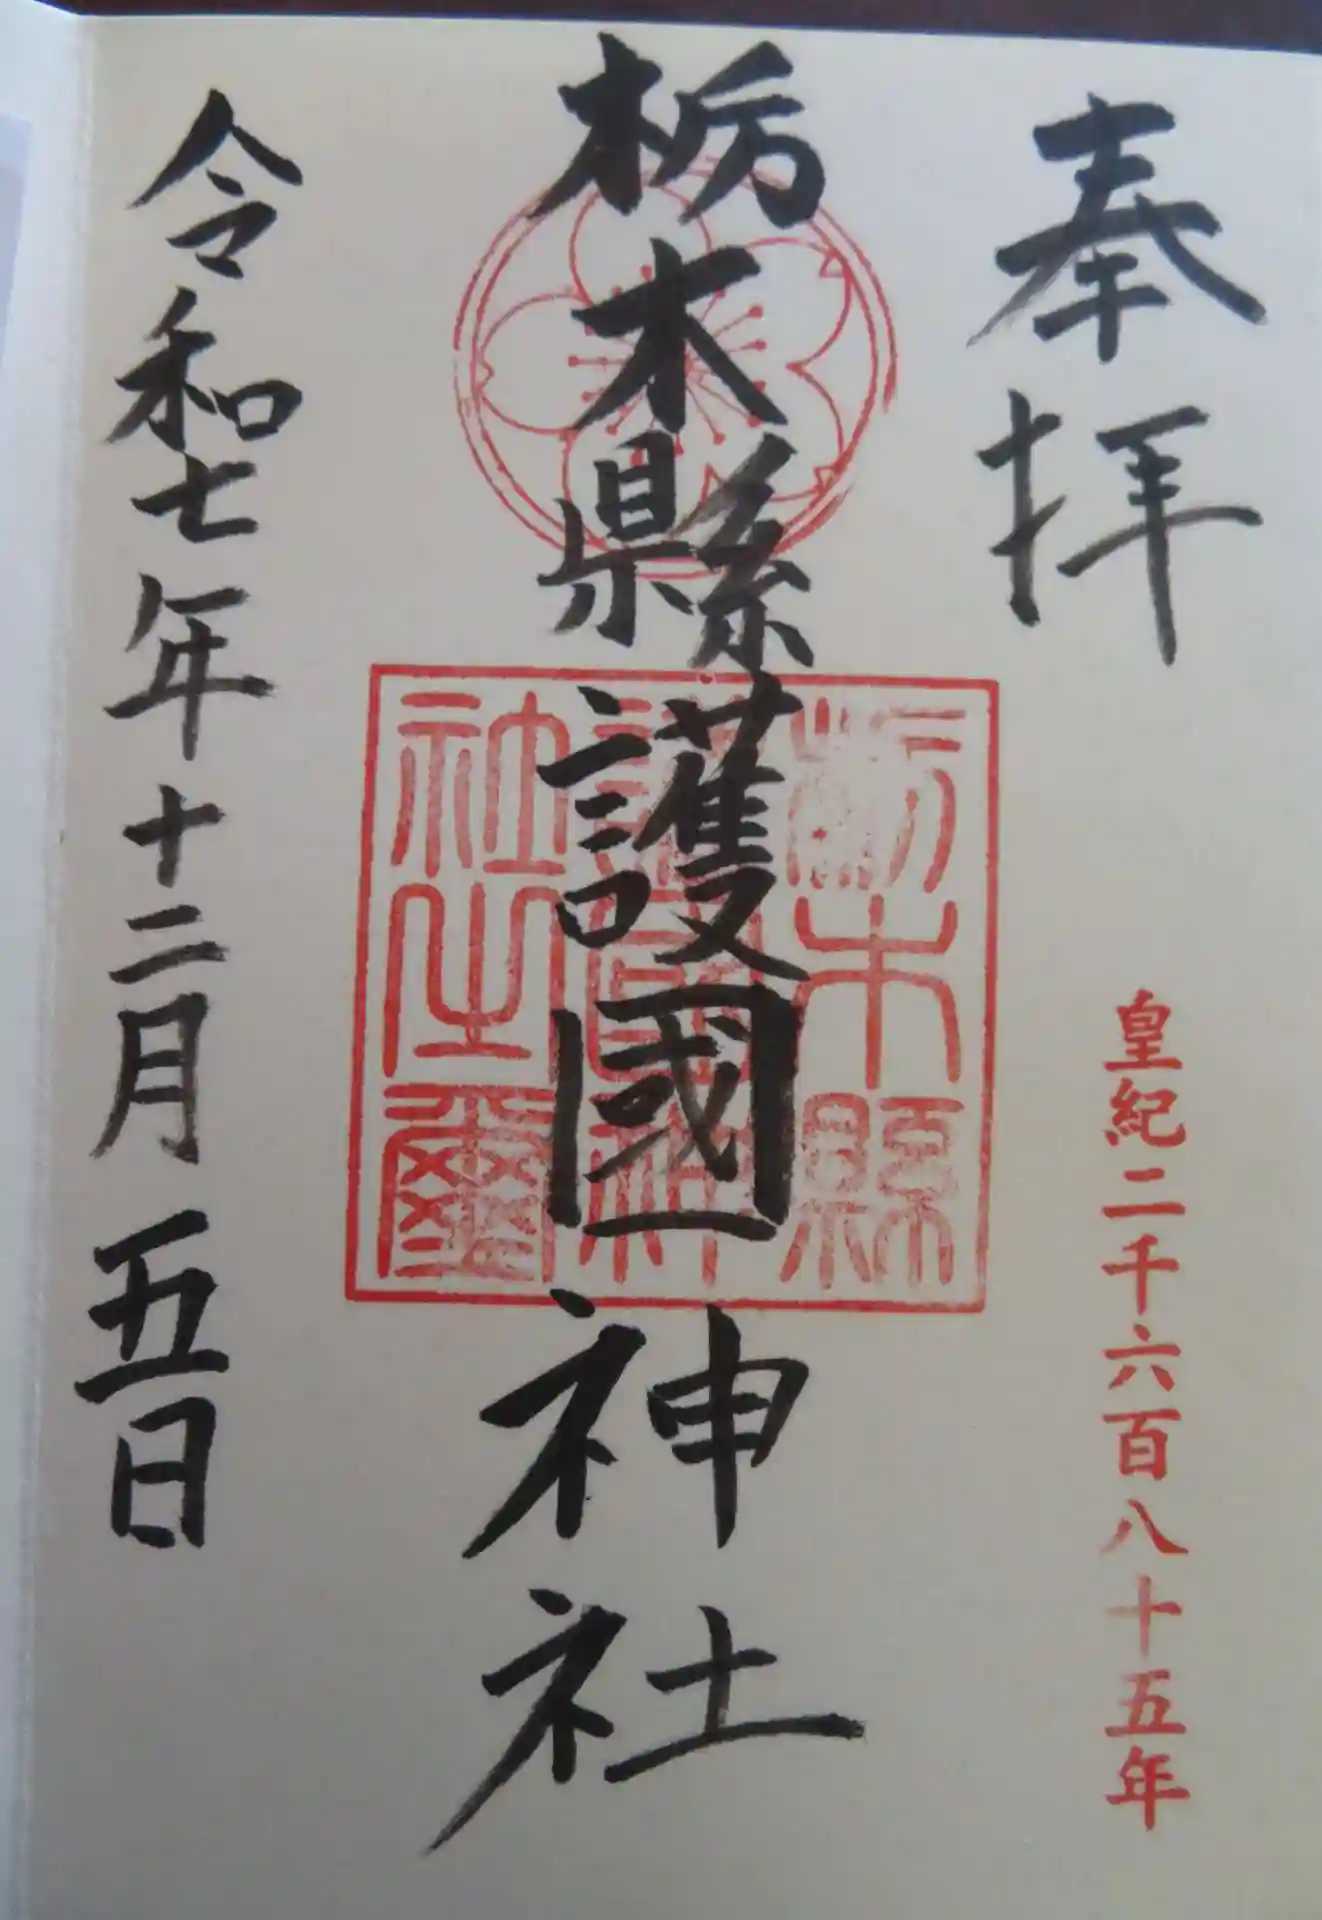 奉拝
皇紀二千六百八十五年
栃木縣護國神社
栃木縣
護國神
社之璽
令和七年十二月五日